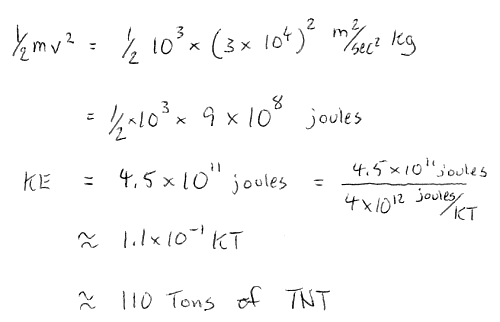 ½mv² = ½ 10³ × (3 × 10⁴)² m²/sec² kg
= ½ × 10³ × 9 × 10⁸ joules
KE = 4.5 × 10¹¹ joules = 4.5 × 10¹¹ joules / 4 × 10¹² joules/KT
≈ 1.1 × 10⁻¹ KT
≈ 110 Tons of TNT